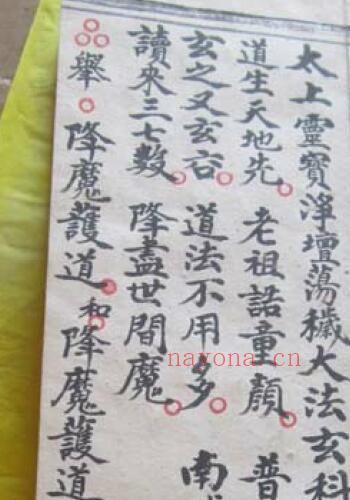 太上靈寶淨壇蕩穢大法玄科
道生天地先 老祖詔童顏 普
玄之又玄谷 道法不用多 南
讀來三七數 降盡世間魔
舉 降魔護道 和 降魔護道
nayona.cn